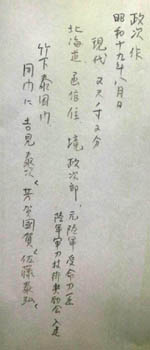 政次作
昭和十九年八月日
現代 二尺一寸四分
北海道 函館住 境政次郎、元陸軍受命刀匠
陸軍軍刀技術奨励会 入選
竹下泰国門
同門に 吉見泰次、芳賀國賀、佐藤泰弘